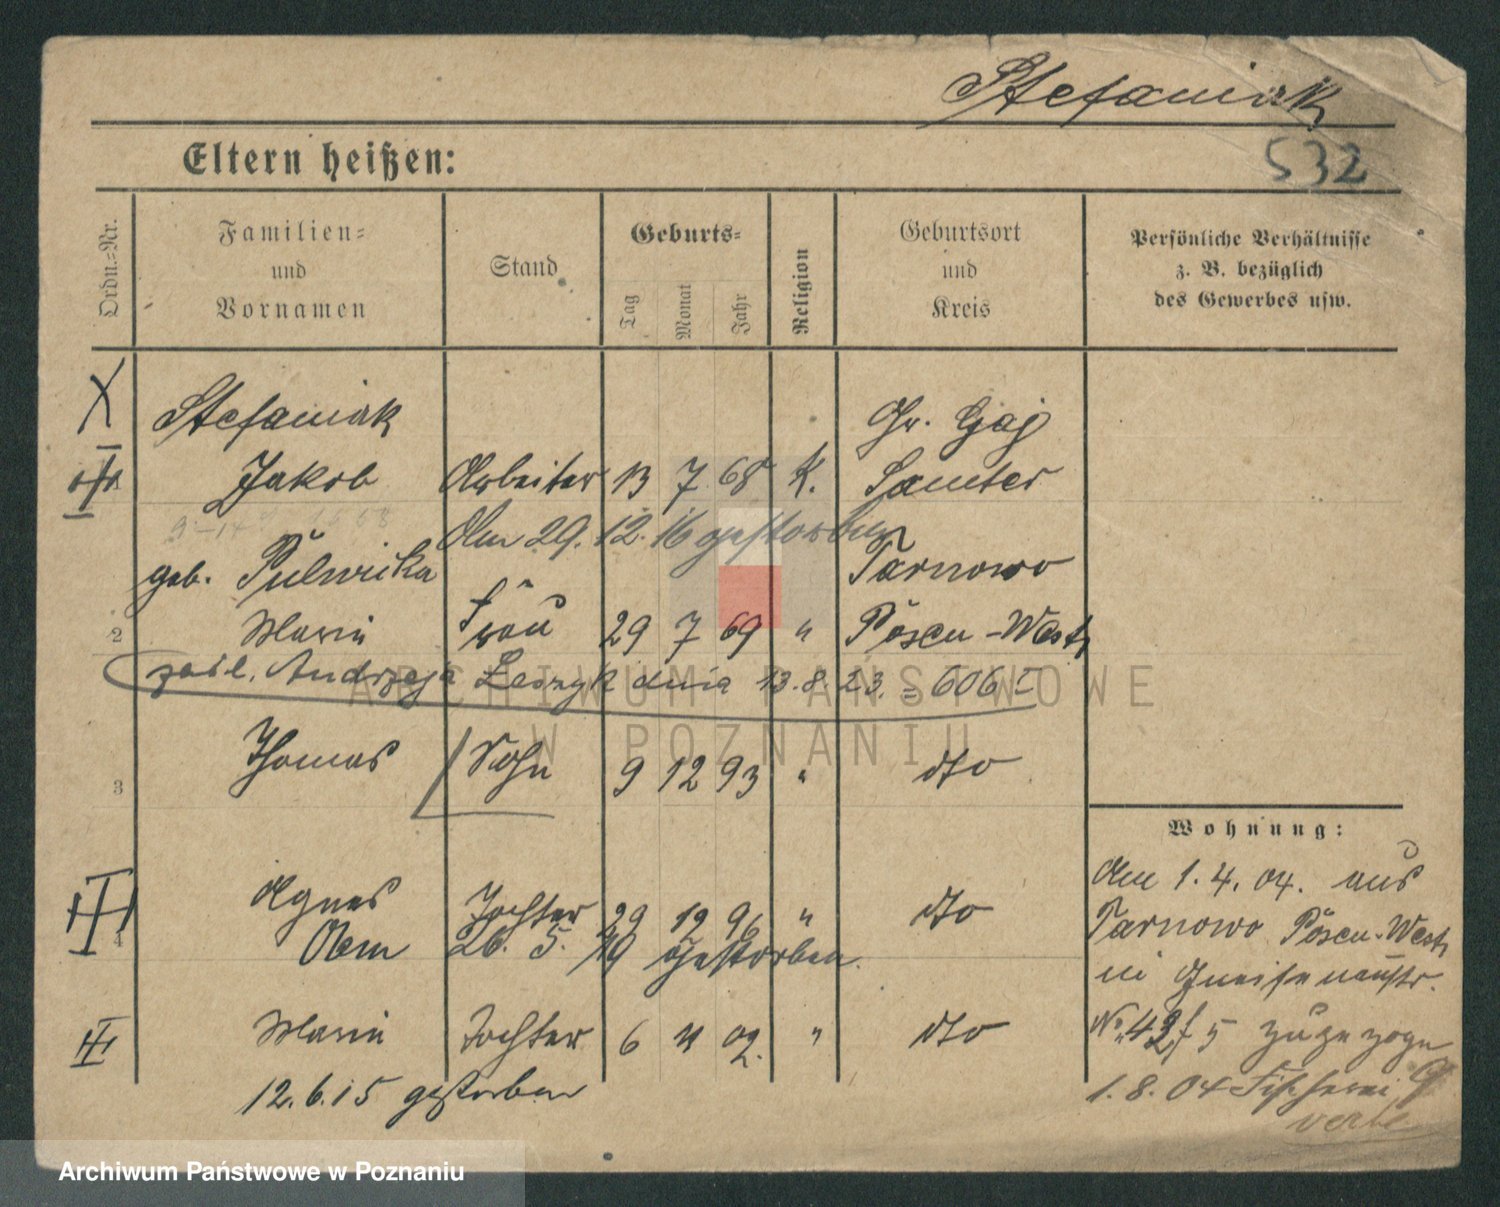 Stefaniak
Eltern heißen:
532
Ordn.-Nr.
Familien- und Vornamen
Stand
Geburts-
Tag
Monat
Jahr
Religion
Geburtsort und Kreis
Persönliche Verhältnisse z. B. bezüglich des Gewerbes usw.
Stefaniak
Gr. Gaj
1 Jakob Arbeiter 13 7 68 K. Samter
Am 29. 12. 16 gestorben
geb. Pulwicka Tarnowo
2 Marie Frau 29 7 69 " Posen-West
zaśl. Andrzeja Leszyk dnia 13.8.23. = 606 I
3 Thomas Sohn 9 12 93 " dto
4 Agnes Tochter 29 12 96 " dto
Am 26. 5. 19 gestorben.
Marie Tochter 6 11 02. " dto
12.6.15 gestorben
Wohnung:
Am 1.4.04. aus
Tarnowo Posen-West
in Gneisenaustr.
No 5 zugezogen
1.8.04 Fischerei 9
ARCHIWUM PAŃSTWOWE
W POZNANIU
Archiwum Państwowe w Poznaniu